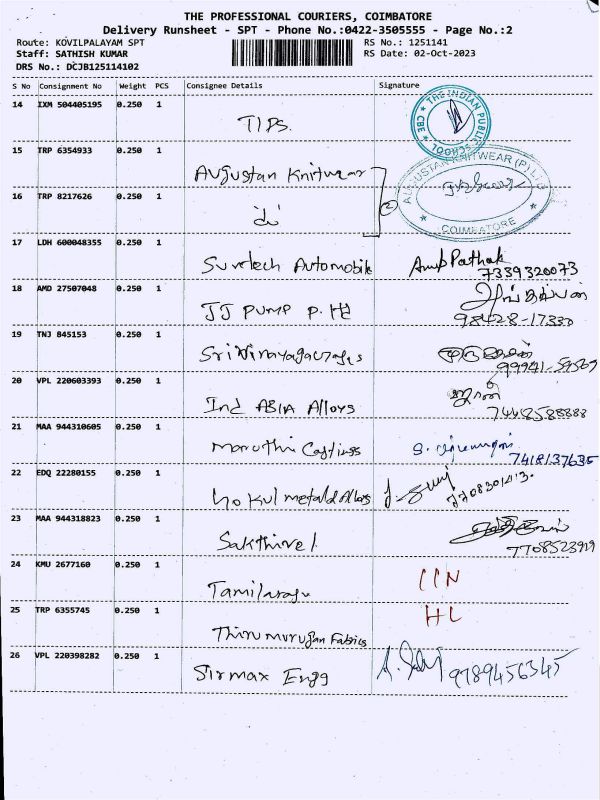 THE PROFESSIONAL COURIERS, COIMBATORE
Delivery Runsheet - SPT - Phone No.:0422-3505555 - Page No.:2
Route: KOVILPALAYAM SPT RS No.: 1251141
Staff: SATHISH KUMAR RS Date: 02-Oct-2023
DRS No.: DCJB125114102
S No Consignment No Weight PCS Consignee Details Signature
14 IXM 504405195 0.250 1 TIPS. THE INDIAN PUBLIC CBE
15 TRP 6354933 0.250 1 Augustan Knitwear AUGUSTAN KNITWEAR (P) LTD
16 TRP 8217626 0.250 1 2 COIMBATORE
17 LDH 600048355 0.250 1 Suretech Automobile Anup Pathak
7339320073
18 AMD 27507048 0.250 1 JJ PUMP P. Ltd
98428-17330
19 TNJ 845153 0.250 1
20 VPL 220603393 0.250 1 Ind ASIA Alloys
21 MAA 944310605 0.250 1 Maruthi Castings
7418137635
22 EDQ 22280155 0.250 1 Gokul metal Alloys
23 MAA 944318823 0.250 1 Sakthivel
7708523919
24 KMU 2677160 0.250 1 Tamilarasu
25 TRP 6355745 0.250 1 Thirumurugan Fabrics
26 VPL 220398282 0.250 1 Sirmax Engg 9789456345